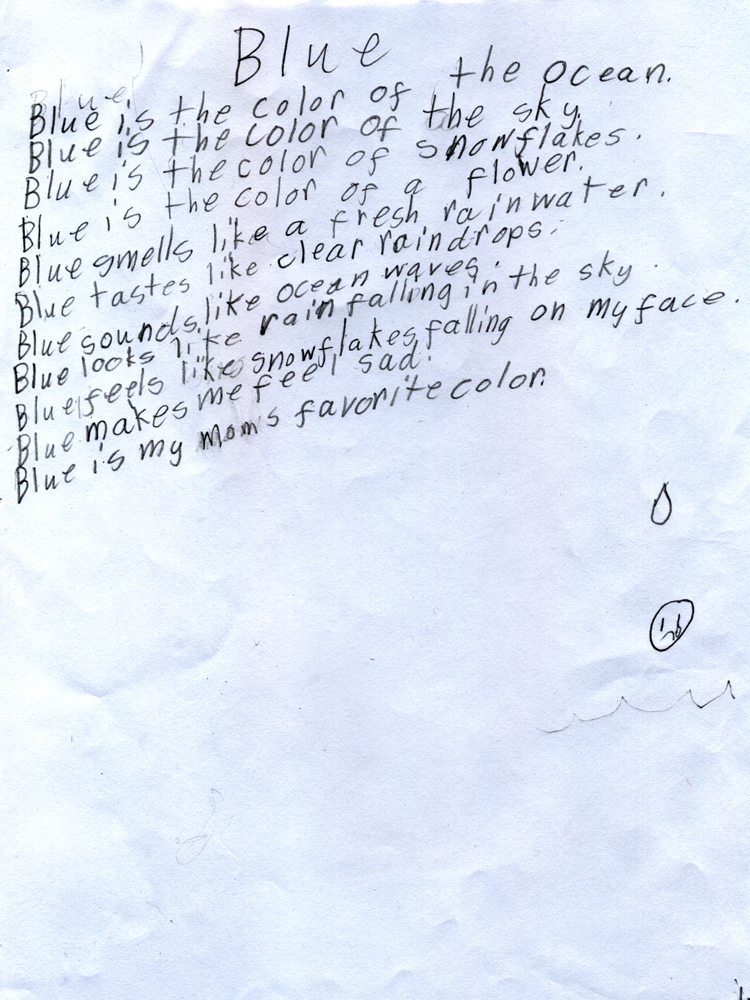 Blue
Blue is the color of the ocean.
Blue is the color of the sky.
Blue is the color of snowflakes.
Blue is the color of a flower.
Blue smells like a fresh rainwater.
Blue tastes like clear raindrops.
Blue sounds like ocean waves.
Blue looks like rain falling in the sky.
Blue feels like snowflakes falling on my face.
Blue makes me feel sad.
Blue is my mom's favorite color.